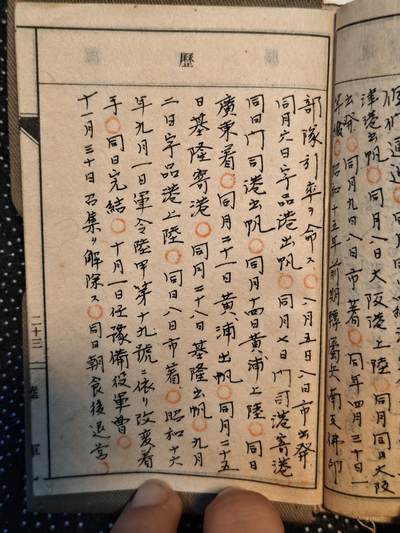 津港出帆○同月八日大阪港上陸○同月同日大阪
出発○同月九日八日市着○同年四月三十日一
○昭和十五年前期 南支佛印
歷
部隊引率ヲ命ス○八月五日八日市出発
同月六日宇品港出帆○同月七日門司港寄港
同日門司港出帆○同月十四日黄浦上陸○同日
廣東着○同月二十一日黄浦出帆○同月二十五
日基隆寄港○同月二十八日基隆出帆○九月
二日宇品港上陸○同日八日市着○昭和十六
年九月一日軍令陸甲第十九號ニ依リ改変着
手○同日完結○十月一日任豫備役軍曹○
十一月三十日召集ヲ解除ス○同日朝食後退営
二十三
陸軍